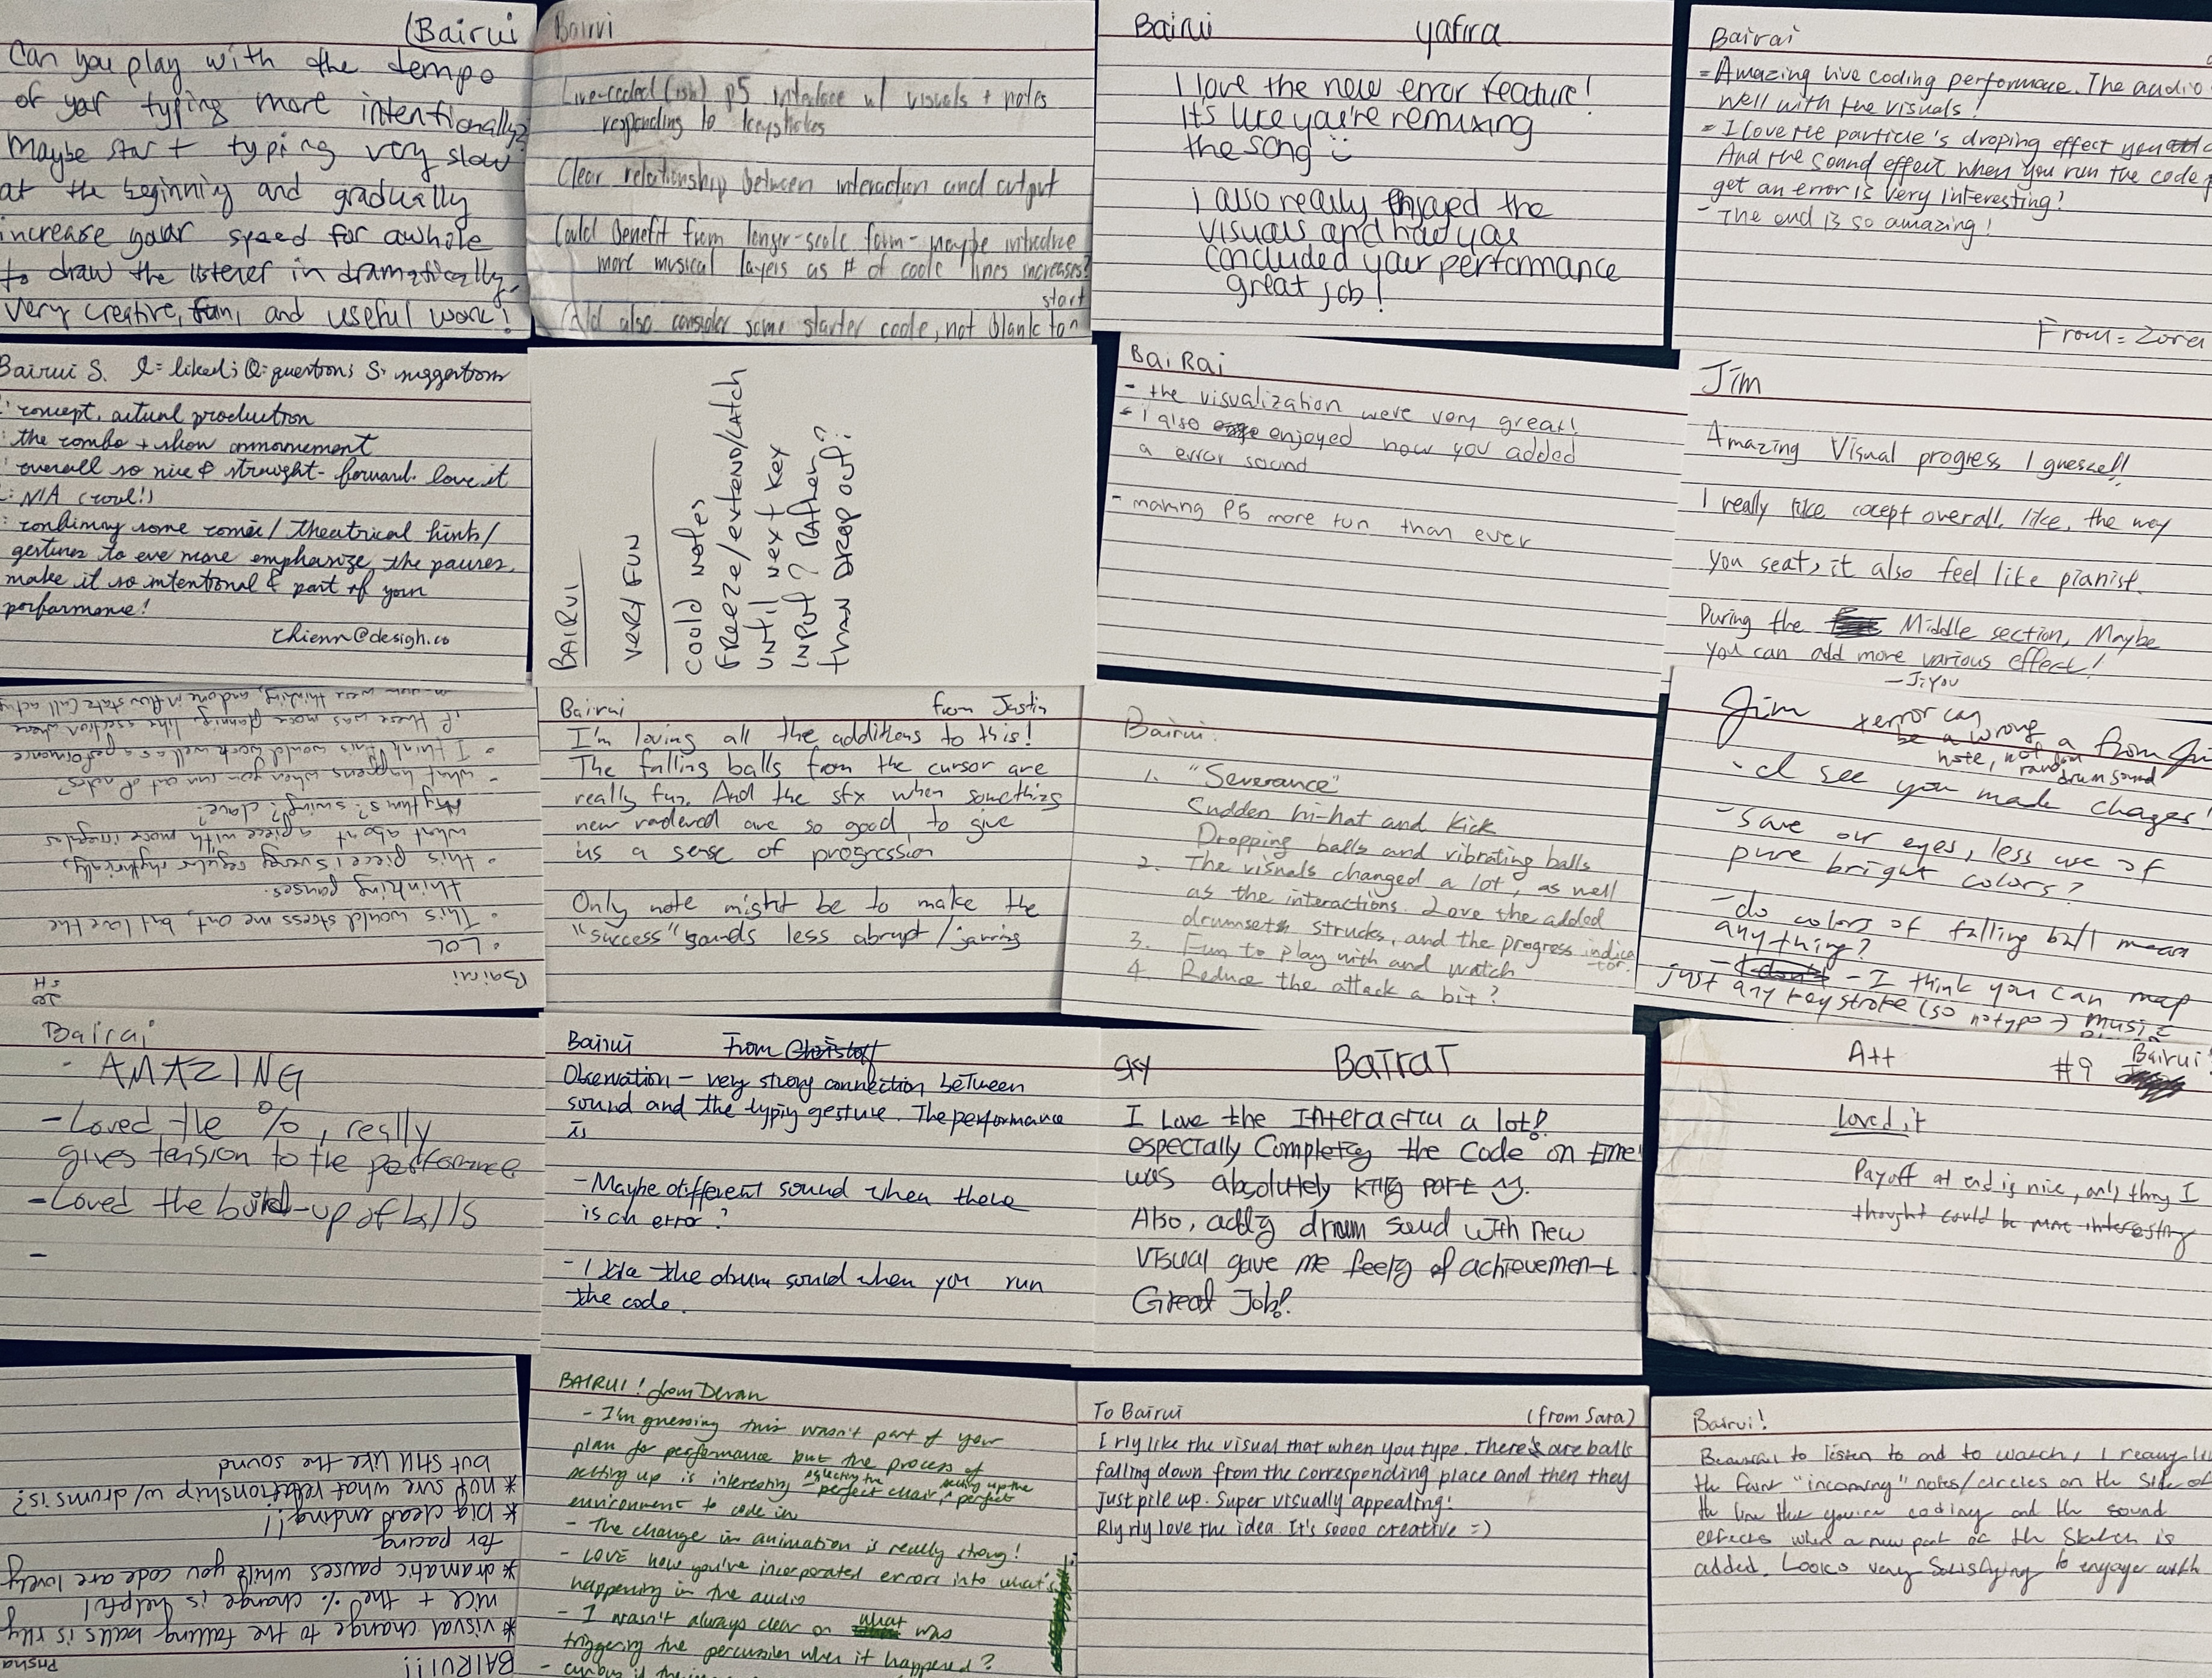 (Bairui
Can you play with the tempo
of your typing more intentionally?
Maybe start typing very slow
at the beginning and gradually
increase your speed for awhole
to draw the listener in dramatically.
Very creative, fun, and useful work!
Bairui
Live-coded (ish) p5 interface w/ visuals + notes
responding to keystrokes
Clear relationship between interaction and output
Could benefit from longer-scale form - maybe introduce
more musical layers as # of code lines increases?
start
Could also consider some starter code, not blank to^
Bairui yafira
I love the new error feature!
It's like you're remixing
the song
i also really enjoyed the
visuals and how you
concluded your performance
great job!
Bairai
= Amazing live coding performace. The audio
well with the visuals!
= I love the particle's droping effect you
And the sound effect when you run the code
get an error is very interesting!
- The end is so amazing!
From = Zora
Bairui S. L = liked; Q = question; S = suggestions
: concept, actual production
: the combo + show announcement
: overall so nice & straight-forward. love it
: N/A (cool!)
: combining some comic / theatrical hints /
gestures to eve more emphasize the pauses,
make it so intentional & part of your
performance!
chienn@desigh.co
BAIRUI
VERY FUN
could notes
FREEZE/extend/LATCH
until next key
INPUT? Rather
than DROP OUT?
BaiRai
- the visualization were very great!
- i also enjoyed how you added
a error sound
- making P5 more fun than ever
Jim
Amazing Visual progress I guesse!!
I really like cocept overall, like, the way
you seat, it also feel like pianist.
During the Middle section, Maybe
you can add more various effect!
- JiYou
Bairui
· LOL
· This would stress me out, but love the
thinking pauses.
· this piece is very regular rhythmically,
what about a piece with more irregular
rhythms? swing? clave?
- what happens when you run out of notes?
· I think this would work well as a performance
if there was more planning, like a section where
were thinking, and one in flow state (all
Bairui from Justin
I'm loving all the additions to this!
The falling balls from the cursor are
really fun. And the sfx when something
new rendered are so good to give
us a sense of progression
Only note might be to make the
"success" sounds less abrupt / jarring
Bairui:
1. "Severance"
Sudden hi-hat and kick
Dropping balls and vibrating balls
2. The visuals changed a lot, as well
as the interactions. Love the added
drumsets strucks, and the progress indica
tor.
3. Fun to play with and watch
4. Reduce the attack a bit?
Jim
xerror can
be a wrong
note, not a
random
drum sound
from
- I see you made chages!
- Save our eyes, less use of
pure bright colors?
- do colors of falling ball mean
anything?
- I think you can map
just any keystroke (so no typo → music
Bairai
· AMAZING
- Loved the %, really
gives tension to the performance
- Loved the build-up of balls
-
Bairui From Christoff
Observation - very strong connection between
sound and the typing gesture. The performance
is
- Maybe different sound when there
is an error?
- I like the drum sound when you run
the code.
BaIraI
I Love the Interactiu a lot!
especially Completeg the code on time!
was absolutely killg part
Also, addig drum soud with new
visual gave me feelg of achievement
Great Job!
A++ #9 Bairui!
Loved it
Payoff at end is nice, only thing I
thought could be more interesting
BAIRUI!!! Prisha
* visual change to the falling balls is rlly
nice + the % change is helpful
* dramatic pauses while you code are lovely
for pacing
* big clear ending!!
* not sure what relationship w/ drums is?
but still like the sound
BAIRUI! from Devan
- I'm guessing this wasn't part of your
plan for performance but the process of
setting up is interesting - selecting the perfect chair, setting up the perfect
environment to code in
- The change in animation is really strong!
- LOVE how you've incorporated errors into what's
happening in the audio
- I wasn't always clear on what was
triggering the percussion when it happened?
- curious if the
To Bairui (from Sara)
I rly like the visual that when you type. There's are balls
falling down from the corresponding place and then they
just pile up. Super visually appealing!
Rly rly love the idea. It's soooo creative =)
Bairui!
Beautiful to listen to and to watch, I really
the faint "incoming" notes/circles on the side of
the line that you're coding and the sound
effects when a new part of the sketch is
added. Looks very satisfying to engage with